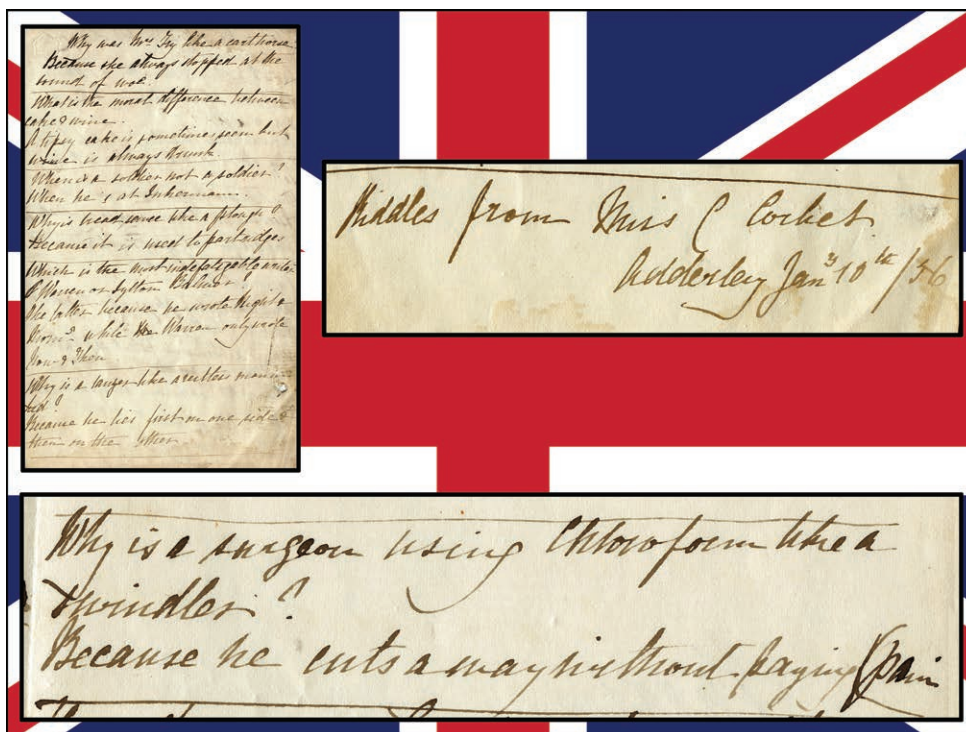 Why was Mrs Fry like a cart horse
Because she always stopped at the
sound of woe.
What is the moral difference between
cake & wine.
A tipsy cake is sometimes seen but
wine is always drunk.
When is a soldier not a soldier?
When he is at Inkermann.
Why is bread sauce like a plough?
Because it is used to partridges
Which is the most indefatigable writer
Warren or Lytton Bulwer
The latter because he wrote Night &
Morn.g while the Warren only wrote
Now & Then
Why is a lawyer like a restless man in
bed?
Because he lies first on one side &
then on the other.
Riddles from Miss C Corbet
Adderley Jany 10th/56
Why is a surgeon using Chloroform like a
swindler?
Because he cuts away without paying (pain